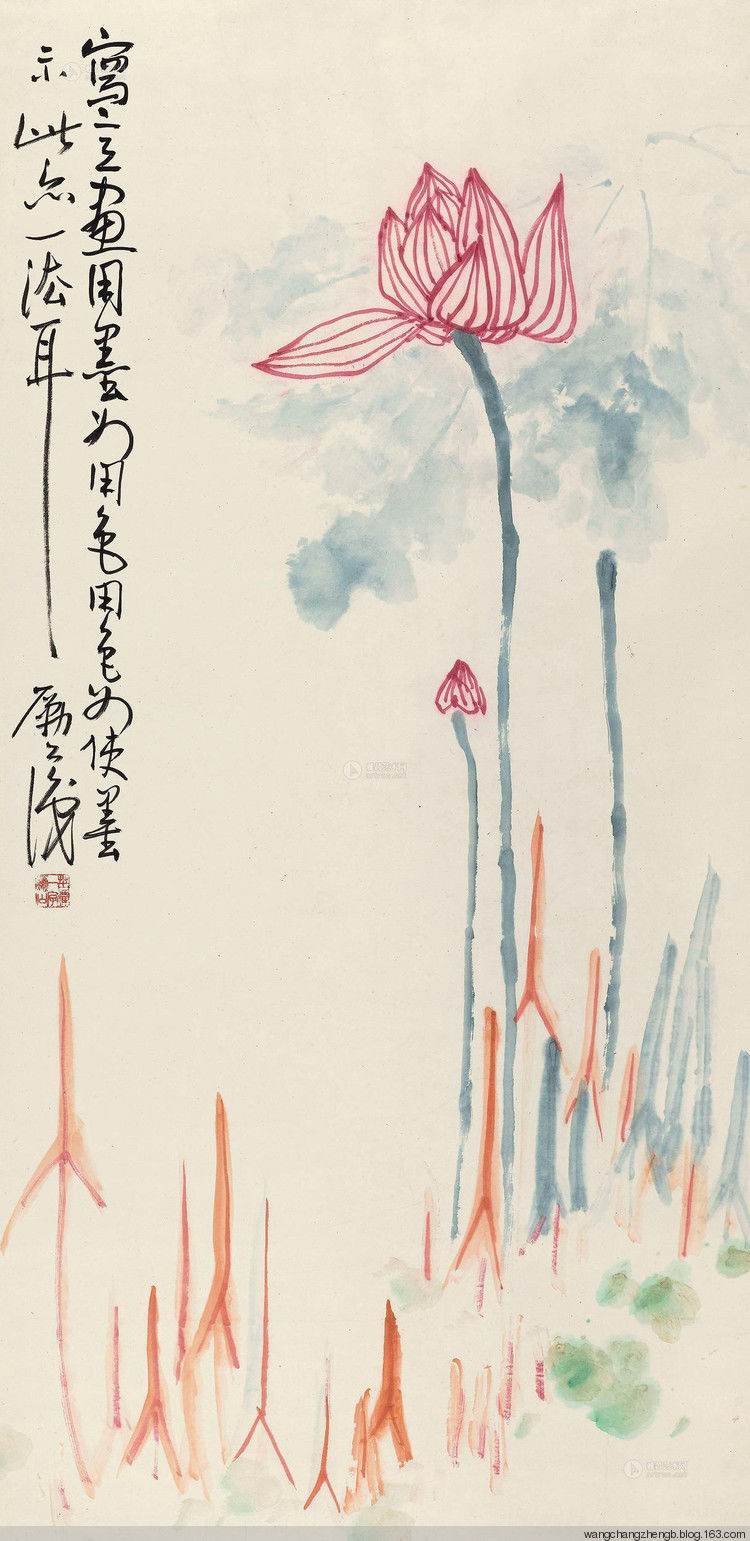 寫意畫用墨如用色用色如使墨
示此亦一法耳
wangchangzhengb.blog.163.com